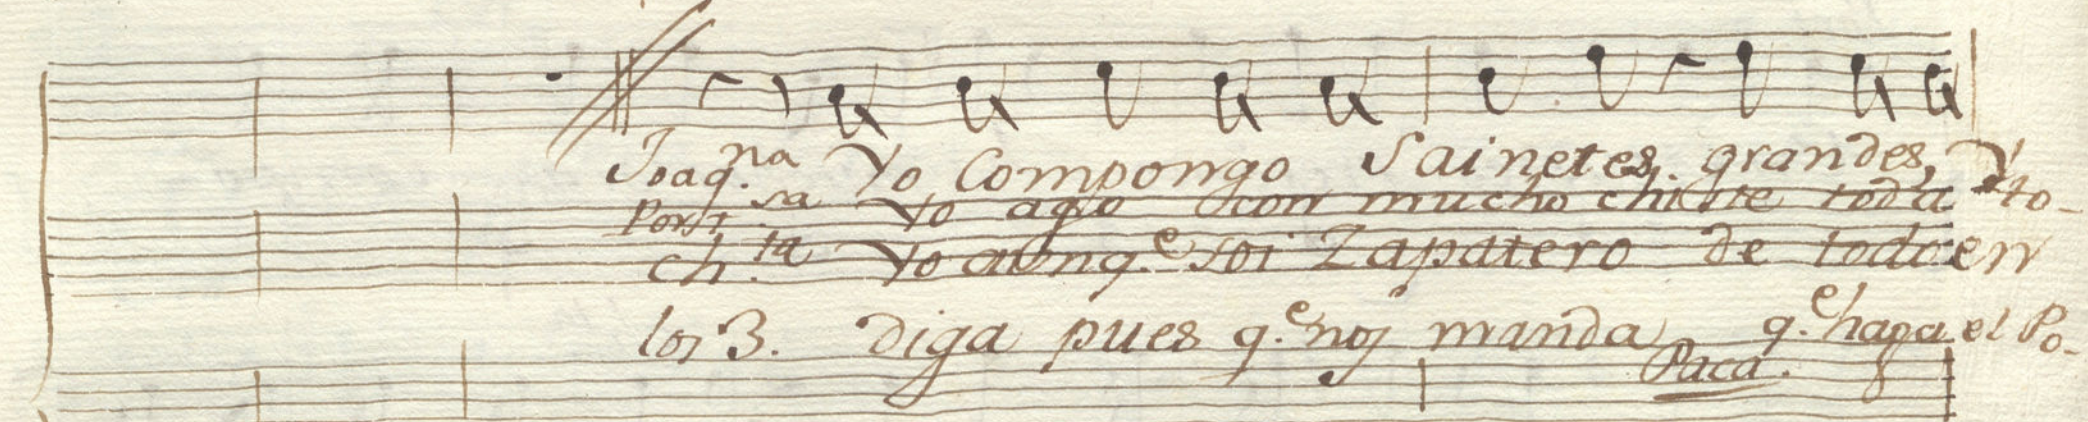 Joaq.na Yo Compongo Sainetes. grandes, y
Porst.sa Yo ago con mucho chiste toda to-
ch.ta Yo aunq.e soi Zapatero de todo en
los 3. diga pues q.e nos manda q.e haga el Po-
Paca.